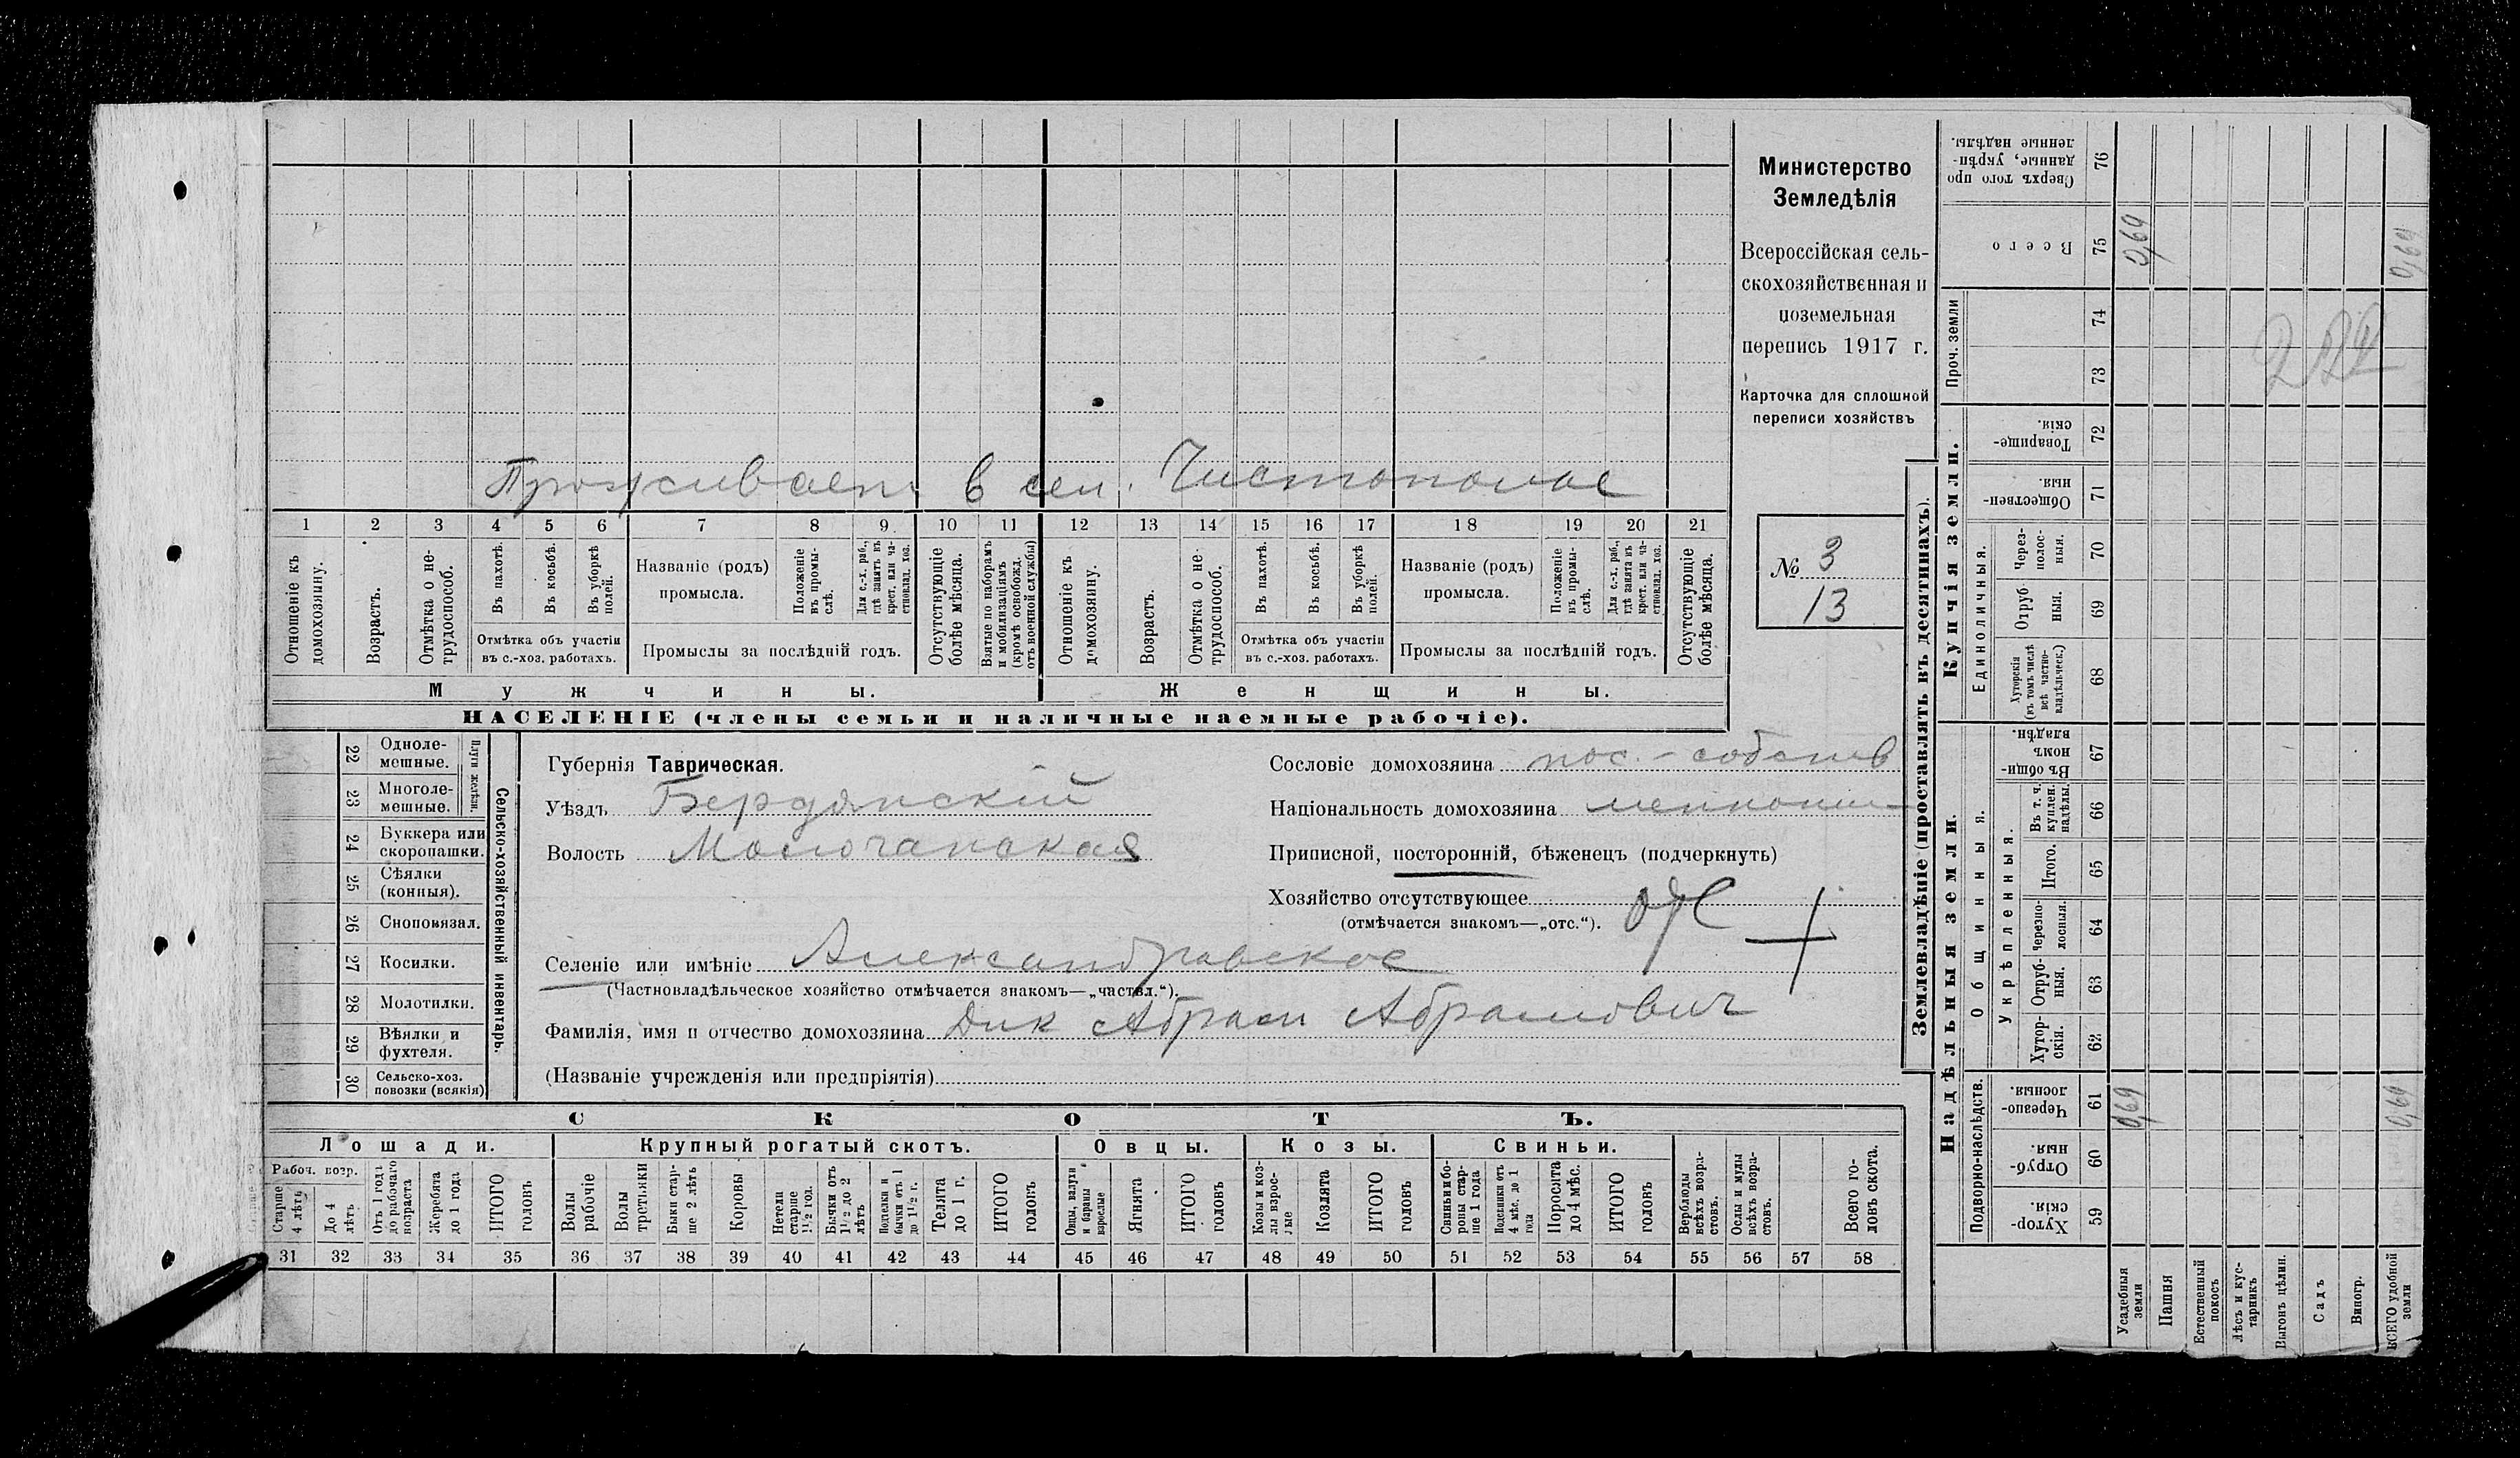 Министерство
Земледѣлія
Всероссійская сель-
скохозяйственная и
поземельная
перепись 1917 г.
Карточка для сплошной
переписи хозяйствъ
№ 3
13
Проживает в сел. Чистополье
1 2 3 4 5 6 7 8 9. 10 11 12 13 14 15 16 17 18 19 20 21
Отношеніе къ домохозяину.
Возрастъ.
Отмѣтка о не-трудоспособ.
Въ пахотѣ.
Въ косьбѣ.
Въ уборкѣ полей.
Отмѣтка объ участіи
въ с.-хоз. работахъ.
Названіе (родъ)
промысла.
Положеніе въ промы-слѣ.
Для с.-х. раб., гдѣ занятъ въ крест. или ча-стновлад. хоз.
Промыслы за послѣдній годъ.
Отсутствующіе болѣе мѣсяца.
Взятые по наборамъ и мобилизаціямъ (кромѣ освобожд. отъ военной службы)
Отношеніе къ домохозяину.
Возрастъ.
Отмѣтка о не-трудоспособ.
Въ пахотѣ.
Въ косьбѣ.
Въ уборкѣ полей.
Отмѣтка объ участіи
въ с.-хоз. работахъ.
Названіе (родъ)
промысла.
Положеніе въ промы-слѣ.
Для с.-х. раб., гдѣ занята въ крест. или ча-стновлад. хоз.
Промыслы за послѣдній годъ.
Отсутствующіе болѣе мѣсяца.
Мужчины. Женщины.
НАСЕЛЕНІЕ (члены семьи и наличные наемные рабочіе).
22 Одноле-мешные.
23 Многоле-мешные.
Плуги желѣзн.
24 Буккера или скоропашки.
25 Сѣялки (конныя).
26 Сноповязал.
27 Косилки.
28 Молотилки.
29 Вѣялки и фухтеля.
30 Сельско-хоз. повозки (всякія)
Сельско-хозяйственный инвентарь.
Губернія Таврическая.
Уѣздъ Бердянскій
Волость Молочанская
Сословіе домохозяина пос.-собств
Національность домохозяина меннонит
Приписной, посторонній, бѣженецъ (подчеркнуть)
Хозяйство отсутствующее
(отмѣчается знакомъ—„отс.“).
Селеніе или имѣніе Александровское
(Частновладѣльческое хозяйство отмѣчается знакомъ—„частвл.“).
Фамилія, имя и отчество домохозяина Дик Абрам Абрамович
(Названіе учрежденія или предпріятія)
СКОТЪ.
Лошади. Крупный рогатый скотъ. Овцы. Козы. Свиньи.
Рабоч. возр.
Старше 4 лѣтъ
До 4 лѣтъ
Отъ 1 года до рабочаго возраста
Жеребята до 1 года
ИТОГО головъ
Волы рабочіе
Волы третьяки
Быки стар-ше 2 лѣтъ
Коровы
Нетели старше 1 1/2 год.
Бычки отъ 1 1/2 до 2 лѣтъ
Нетелки и бычки отъ 1 до 1 1/2 г.
Телята до 1 г.
ИТОГО головъ
Овцы, валухи и бараны взрослые
Ягнята
ИТОГО головъ
Козы и коз-лы взрос-лые
Козлята
ИТОГО головъ
Свиньи и бо-ровы стар-ше 1 года
Подсвинки отъ 4 мѣс. до 1 года
Поросята до 4 мѣс.
ИТОГО головъ
Верблюды всѣхъ возра-стовъ.
Ослы и мулы всѣхъ возра-стовъ.
Всего го-ловъ скота.
31 32 33 34 35 36 37 38 39 40 41 42 43 44 45 46 47 48 49 50 51 52 53 54 55 56 57 58
Землевладѣніе (проставлять въ десятинахъ).
Надѣльныя земли. Купчія земли.
Проч. земли
Подворно-наслѣдств.
Общинныя.
Укрѣпленныя.
Единоличныя.
Сверхъ того про данные, укрѣп-ленные надѣлы. 76
Всего 75 0,69 0,69
74
73
Товарище-скія. 72
Обществен-ныя. 71
Через-полос-ныя. 70
Отруб ныя. 69
Хуторскія (въ томъ числѣ всѣ частно-владѣльческ.) 68
Въ общи-номъ владѣн. 67
Въ т. ч. куплен. надѣлы. 66
Итого. 65
Черезпо-лосныя. 64
Отруб-ныя. 63
Хутор-скія. 62
Черезпо-лосныя. 61 0,69 0,69
Отруб-ныя. 60
Хутор-скія. 59
Усадебныя земли
Пашня
Естественный покосъ
Лѣсъ и кус-тарникъ
Выгонъ цѣлин.
Садъ
Виногр.
ВСЕГО удобной земли